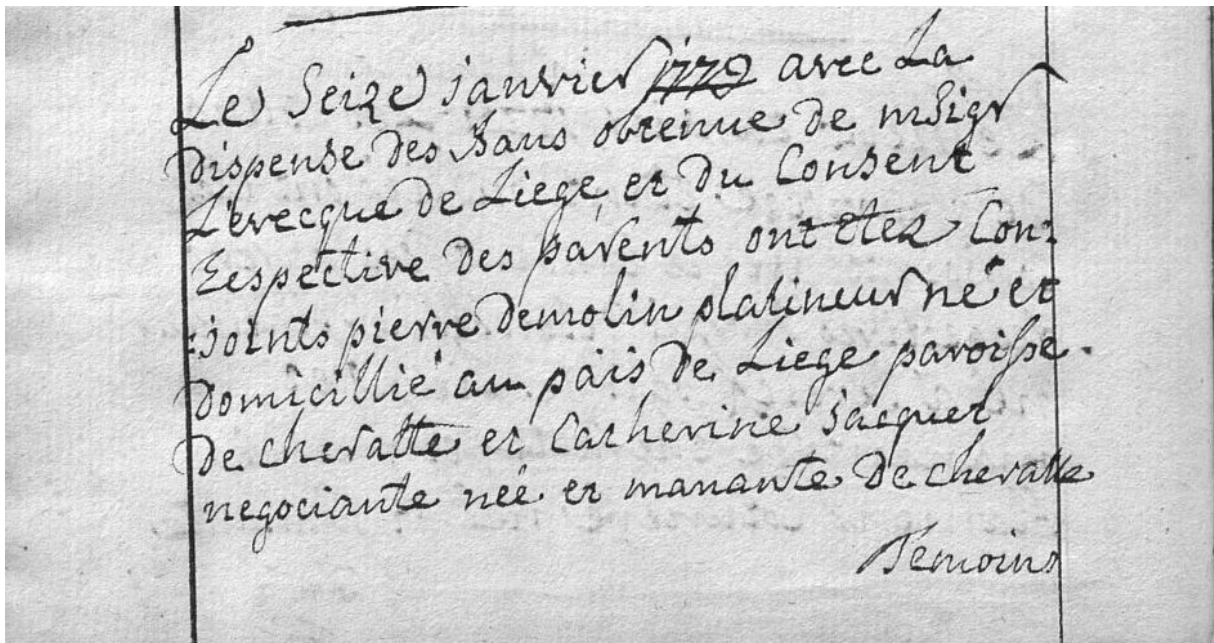 Le Seize janvier 1779 avec La
dispense des bans obtenue de mSigr
L'evecque de Liege et du Consent
Respective des parents ont etez Con:
:joints pierre demolin platineur né et
domicillié au païs de Liege paroisse
de cheratte et Catherine jacquet
negociante née et manante de cheratte
Temoins